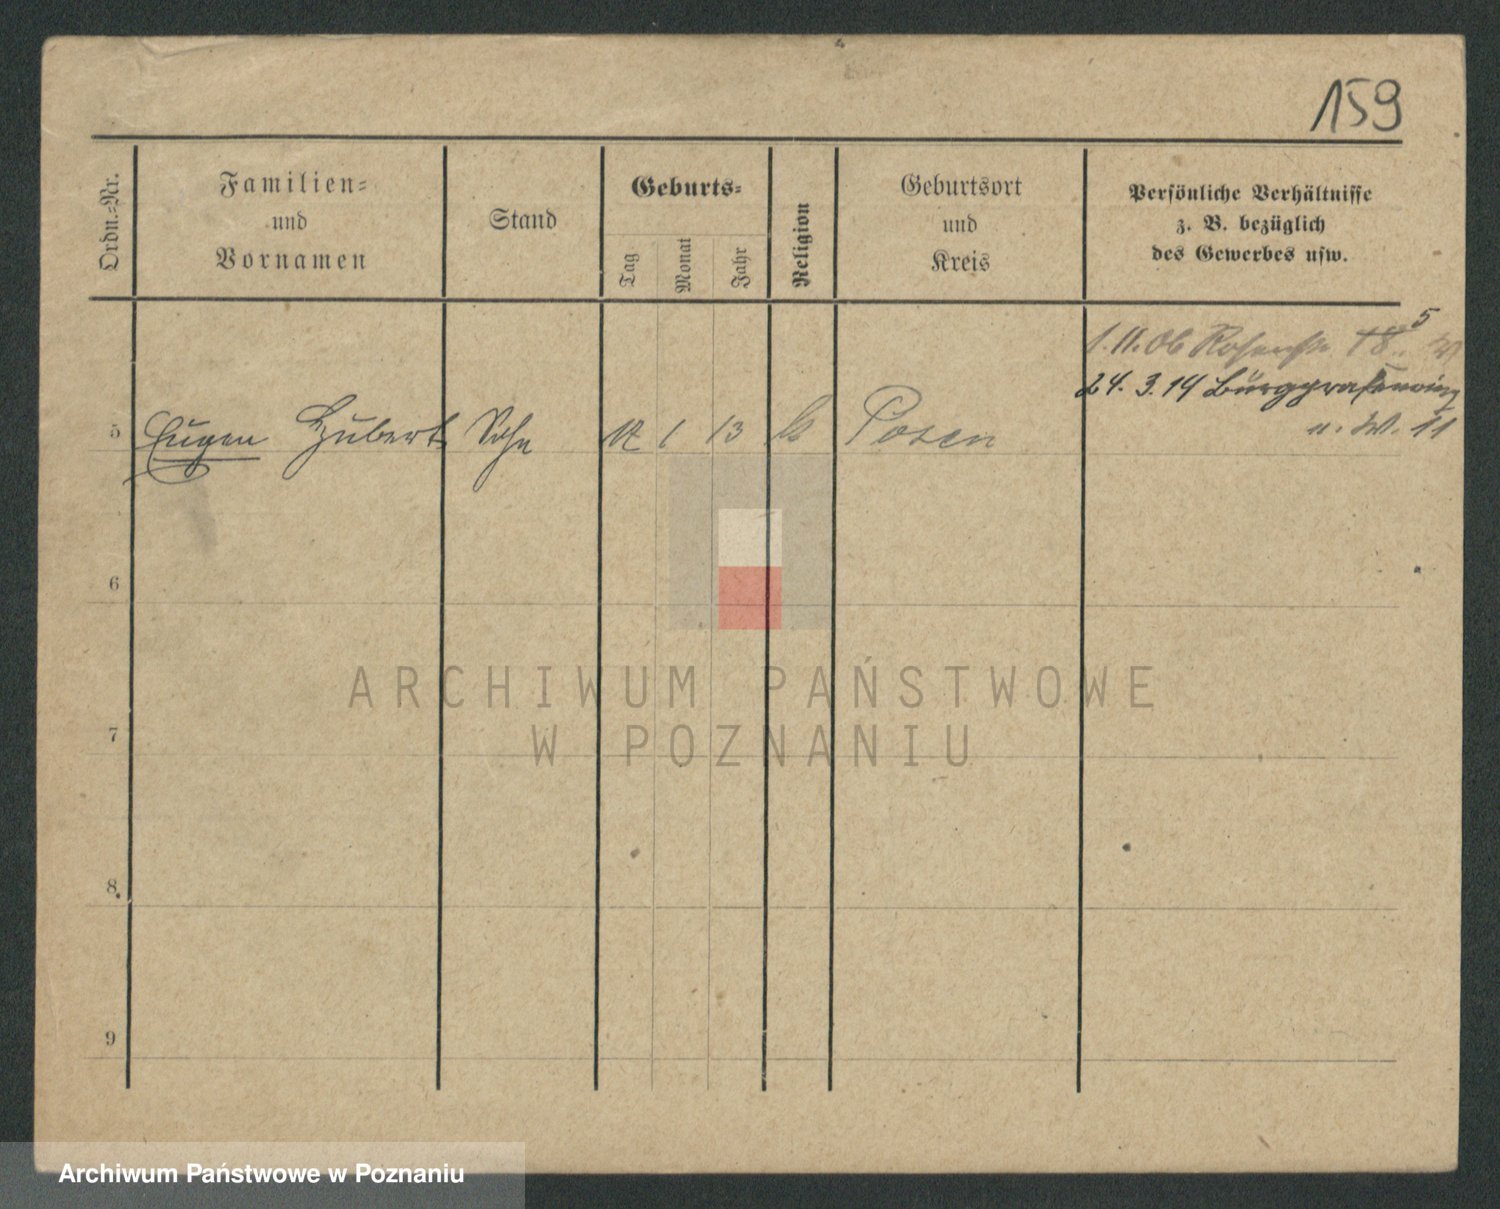 159
Ordn.-Nr.
Familien-
und
Vornamen
Stand
Geburts-
Tag
Monat
Jahr
Religion
Geburtsort
und
Kreis
Persönliche Verhältnisse
z. B. bezüglich
des Gewerbes usw.
5
1. 11. 06
24. 3. 14
11
5 Eugen Hubert Sohn 1 13 Posen
6
7
8
9
ARCHIWUM PAŃSTWOWE
W POZNANIU
Archiwum Państwowe w Poznaniu